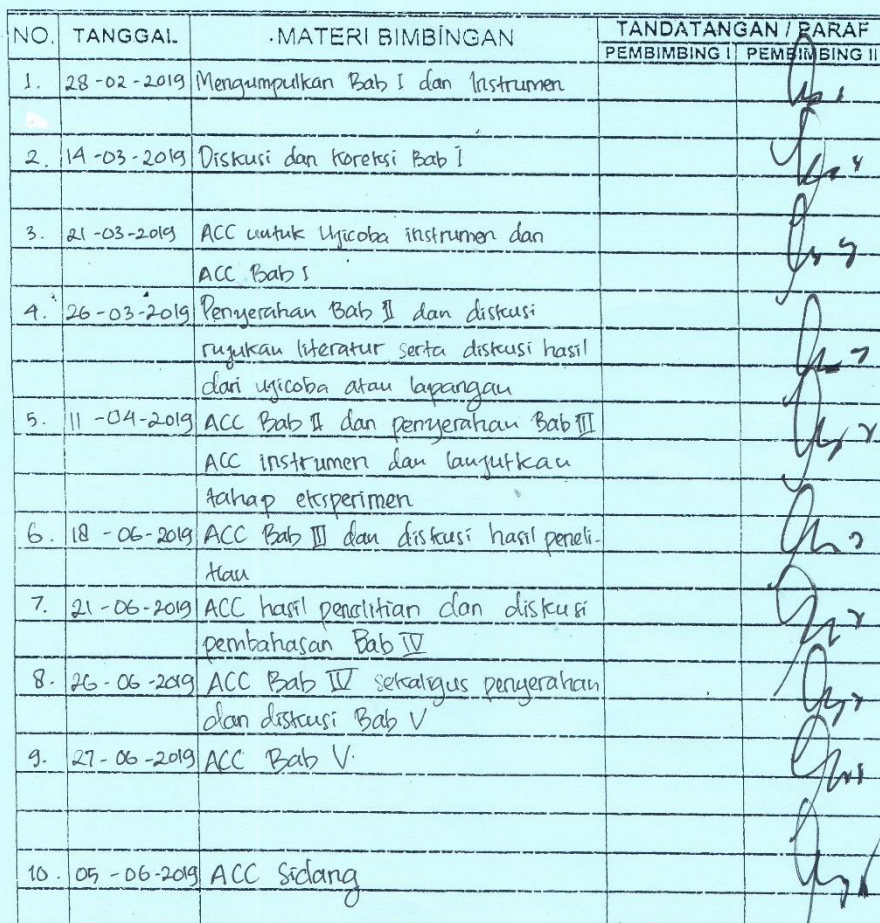 NO. TANGGAL MATERI BIMBINGAN TANDATANGAN / PARAF
PEMBIMBING I PEMBIMBING II
1. 28-02-2019 Mengumpulkan Bab I dan Instrumen
2. 14-03-2019 Diskusi dan Koreksi Bab I
3. 21-03-2019 ACC untuk Ujicoba instrumen dan
ACC Bab I
4. 26-03-2019 Penyerahan Bab II dan diskusi
rujukan literatur serta diskusi hasil
dari ujicoba atau lapangan
5. 11-04-2019 ACC Bab II dan penyerahan Bab III
ACC instrumen dan lanjutkan
tahap eksperimen
6. 18-06-2019 ACC Bab III dan diskusi hasil peneli-
tian
7. 21-06-2019 ACC hasil penelitian dan diskusi
pembahasan Bab IV
8. 26-06-2019 ACC Bab IV sekaligus penyerahan
dan diskusi Bab V
9. 27-06-2019 ACC Bab V.
10. 05-06-2019 ACC Sidang